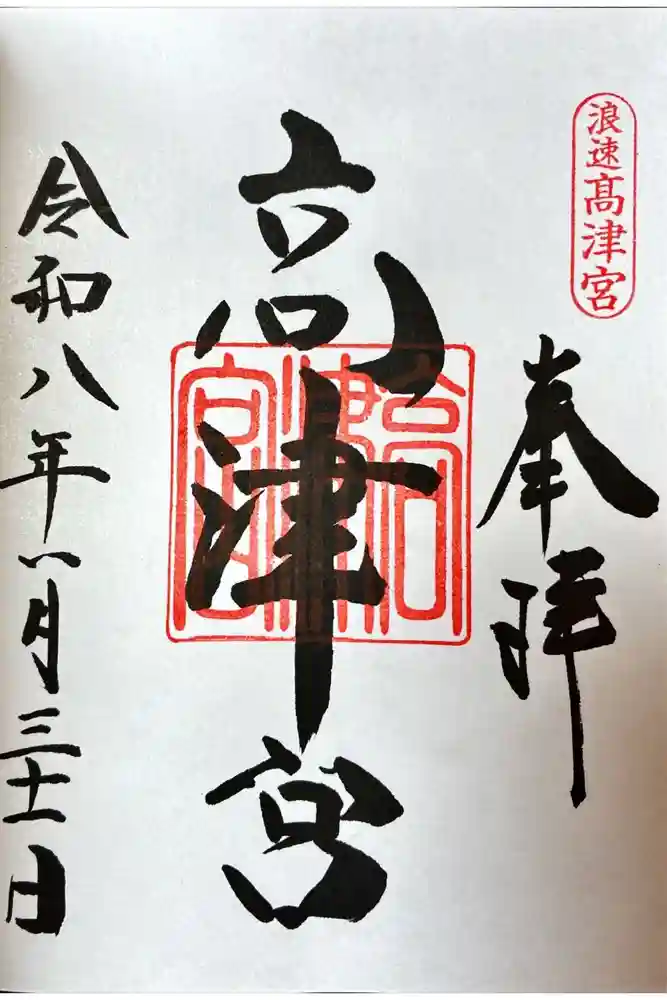 浪速高津宮
奉拝
高津宮
高津宮
令和八年八月三十一日